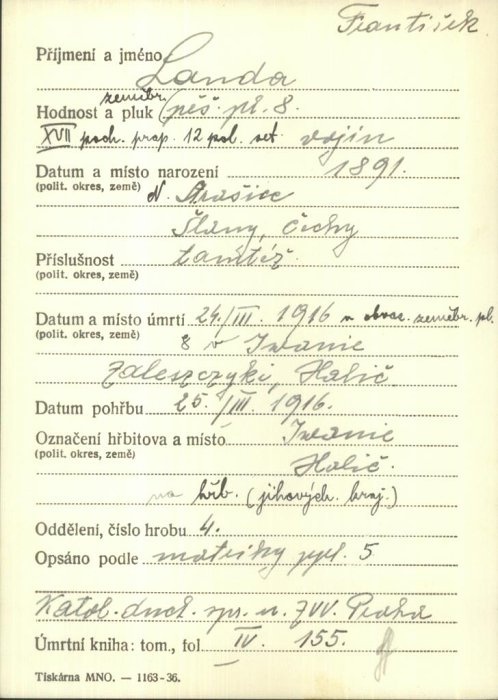 František
Příjmení a jméno Landa
zeměbr.
Hodnost a pluk (pěš. pl. 8.
XVII poch. prap. 12 pol. set. vojín
Datum a místo narození 1891.
(polit. okres, země) N. Strašice
Slaný, Čechy
Příslušnost tamtéž.
(polit. okres, země)
Datum a místo úmrtí 24./III. 1916 v obvaz. zeměbr. pl.
(polit. okres, země) 8 v Iwanie
Zaleszczyki, Halič
Datum pohřbu 25. /III. 1916.
Označení hřbitova a místo Iwanie
(polit. okres, země)
Halič.
na hřb. (jihových. kraj.)
Oddělení, číslo hrobu 4.
Opsáno podle matriky ppl. 5
Katol. duch. spr. u ZVV. Praha
Úmrtní kniha: tom., fol IV. 155.
Tiskárna MNO. — 1163-36.